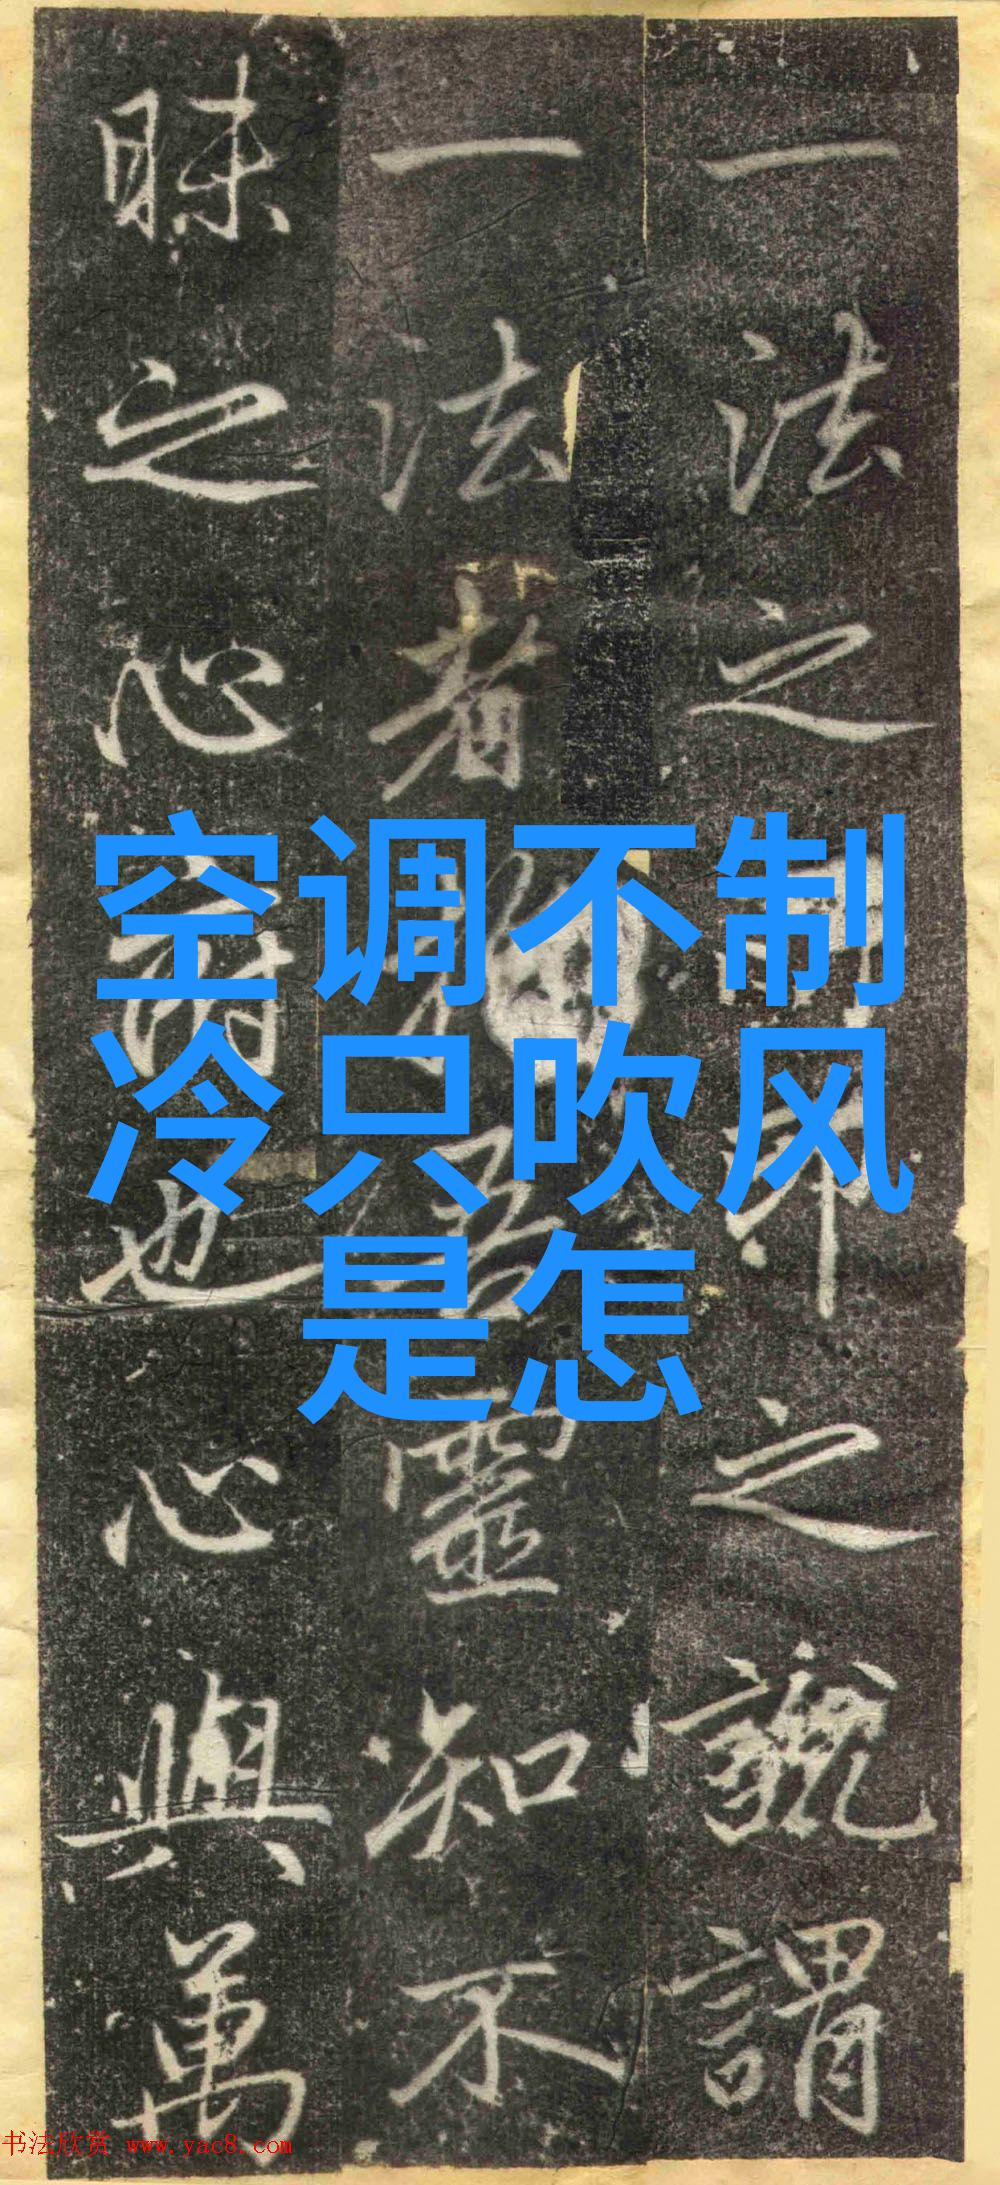 空调不制
冷只吹风
是怎
一法之印之號謂
一法者吾靈知不
昧之心也心與萬
书法欣赏 www.yac8.com